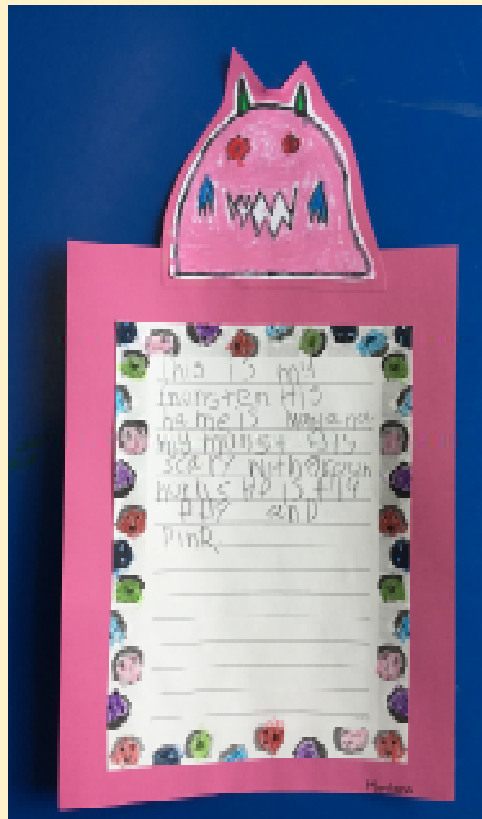 This is my
monster His
name is
my monst
scary with green
horns He is fly
and
pink.